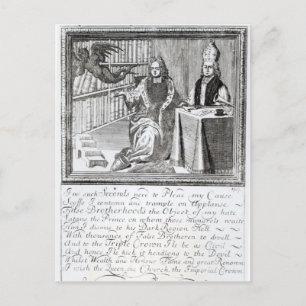 Two such Seconds were to Plead my Cause
Scoffs I contemn and trample on Applause
False Brotherhoods the Object of my hate
Satans the Prince on whom those Mongrels waite
And I disown to his Dark Region Hell
With thousands of False Bretheren to dwell
And to the Triple Crown I'le be as Civil
And hence I'le kick or headlong to the Devil
Whilst Wealth and Honour Fame and great Renown
I wish the Queen the Church the Imperial Crown